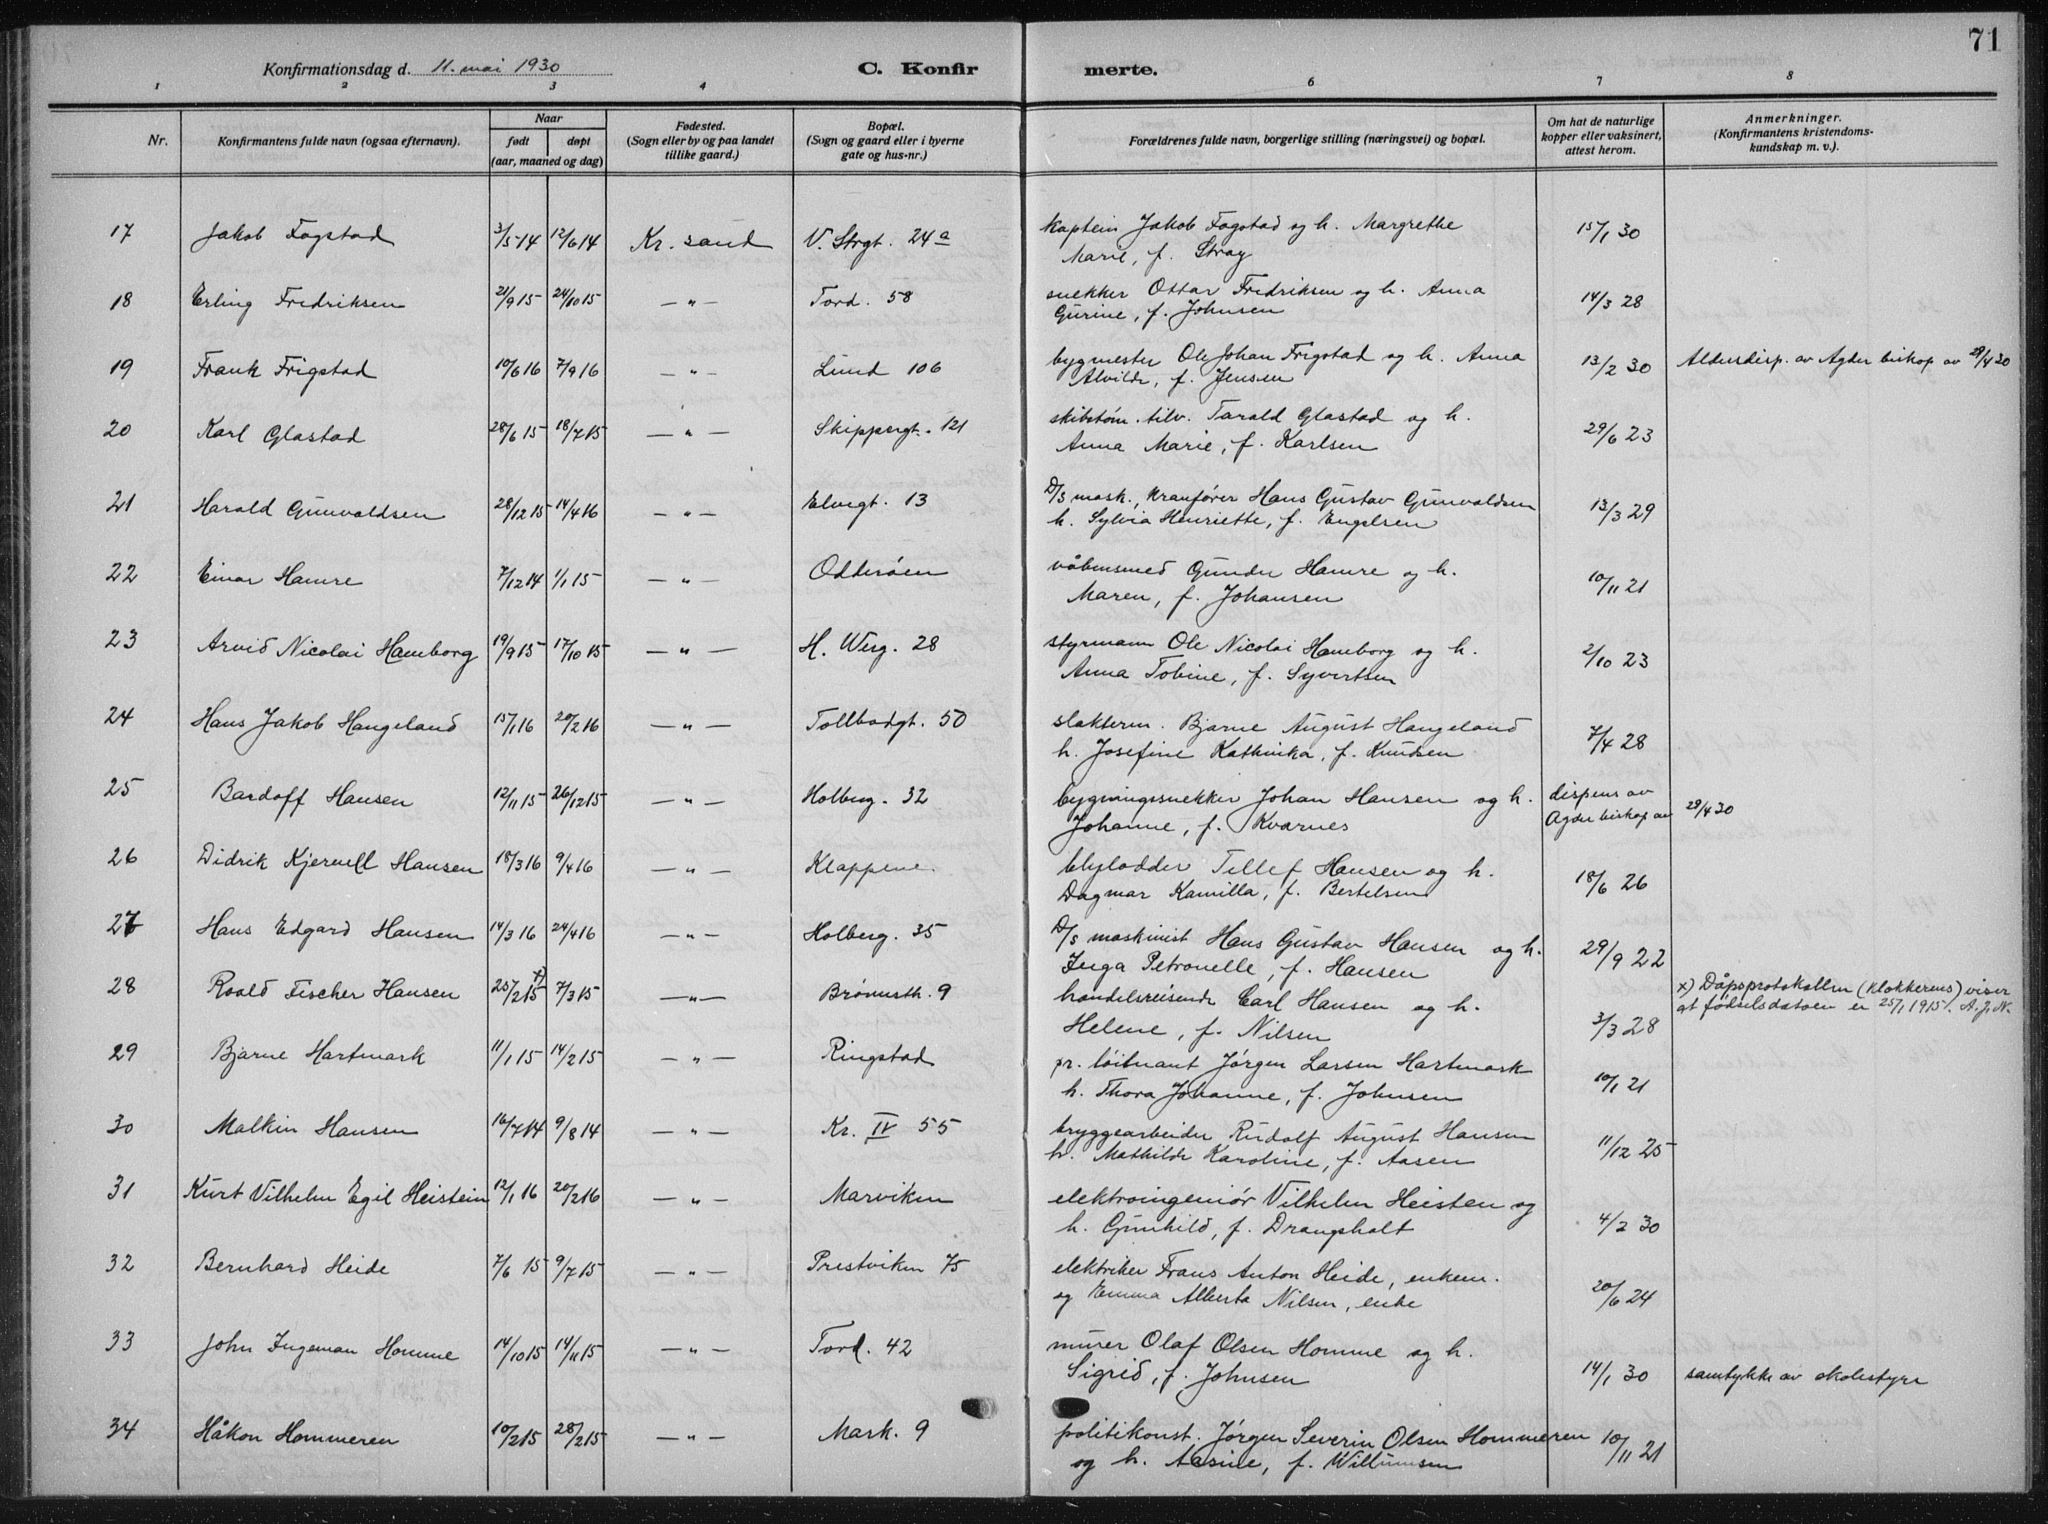 71
Konfirmationsdag d. 11. mai 1930 C. Konfirmerte.
1 2 3 4 6 7 8
Nr. Konfirmantens fulde navn (ogsaa efternavn). Naar født døpt (aar, maaned og dag) Fødested. (Sogn eller by og paa landet tillike gaard.) Bopæl. (Sogn og gaard eller i byerne gate og hus-nr.) Forældrenes fulde navn, borgerlige stilling (næringsvei) og bopæl. Om hat de naturlige kopper eller vaksinert, attest herom. Anmerkninger. (Konfirmantens kristendoms-kundskap m. v.).
17 Jakob Fogstad 3/5 14 12/6 14 Kr. sand V. Strgt. 24a kaptein Jakob Fogstad og h. Margrethe 15/1 30
Marie, f. Stray
18 Erling Fredriksen 21/9 15 24/10 15 —"— Tord. 58 snekker Ottar Fredriksen og h. Anna 14/3 28
Gurine, f. Johnsen
19 Frank Frigstad 10/6 16 7/9 16 —"— Lund 106 bygmester Ole Johan Frigstad og h. Anna 13/2 30 Aldersdisp. av Agder biskop av 29/4 30
Alvilde, f. Jensen
20 Karl Glastad 28/6 15 18/7 15 —"— Skippergt. 121 skibstøm. tilv. Tarald Glastad og h. 29/6 23
Anna Marie, f. Karlsen
21 Harald Gunvaldsen 28/12 15 14/4 16 —"— Elvegt. 13 D/s mask. kranfører Hans Gustav Gunvaldsen 13/3 29
h. Sylvia Henriette, f. Engelsen
22 Einar Hamre 7/12 14 1/1 15 —"— Odderøen våbensmed Gunder Hamre og h. 10/11 21
Maren, f. Johansen
23 Arvid Nicolai Hamborg 19/9 15 17/10 15 —"— H. Werg. 28 styrmann Ole Nicolai Hamborg og h. 2/10 23
Anna Tobine, f. Syvertsen
24 Hans Jakob Hangeland 15/1 16 20/2 16 —"— Tollbodgt. 50 slakterm. Bjarne August Hangeland 7/4 28
h. Josefine Kathinka, f. Knudsen
25 Bardoff Hansen 12/11 15 26/12 15 —"— Holberg. 32 bygningssnekker Johan Hansen og h. dispens av
Johanne, f. Kvarnes Agder biskop av 29/4 30
26 Didrik Kjervell Hansen 18/3 16 9/4 16 —"— Klappene. blylodder Tellef Hansen og h. 18/6 26
Dagmar Kamilla, f. Bertelsen
27 Hans Edgard Hansen 14/3 16 24/4 16 —"— Holberg. 35 D/s maskinist Hans Gustav Hansen og h. 29/9 22
Inga Petronelle, f. Hansen
28 Roald Fischer Hansen 25/2 15 x) 7/3 15 —"— Brønnsth. 9 handelsreisende Carl Hansen og h. 3/3 28 x) Dåpsprotokollen (klokkerens) viser
Helene, f. Nilsen at fødselsdatoen er 25/1 1915. A.J.N.
29 Bjarne Hartmark 11/1 15 14/2 15 —"— Ringstad pr. løitnant Jørgen Larsen Hartmark 10/1 21
h. Thora Johanne, f. Johnsen
30 Malkin Hansen 16/7 14 9/8 14 —"— Kr. IV 55 bryggearbeider Rudolf August Hansen 11/12 25
h. Mathilde Karoline, f. Aasen
31 Kurt Vilhelm Egil Heistein 12/1 16 20/2 16 —"— Marviken elektroingeniør Vilhelm Heisten og 4/2 30
h. Gunhild, f. Drangsholt
32 Bernhard Heide 7/6 15 9/7 15 —"— Prestviken 75 elektriker Frans Anton Heide, enkem. 20/6 24
og Emma Alberta Nilsen, enke
33 John Ingeman Homme 14/10 15 14/11 15 —"— Tord. 42 murer Olaf Olsen Homme og h. 14/1 30 samtykke av skolestyre
Sigrid, f. Johnsen
34 Håkon Hommeren 10/2 15 28/2 15 —"— Mark. 9 politikonst. Jørgen Severin Olsen Hommeren 10/11 21
og h. Aasine, f. Willumsen